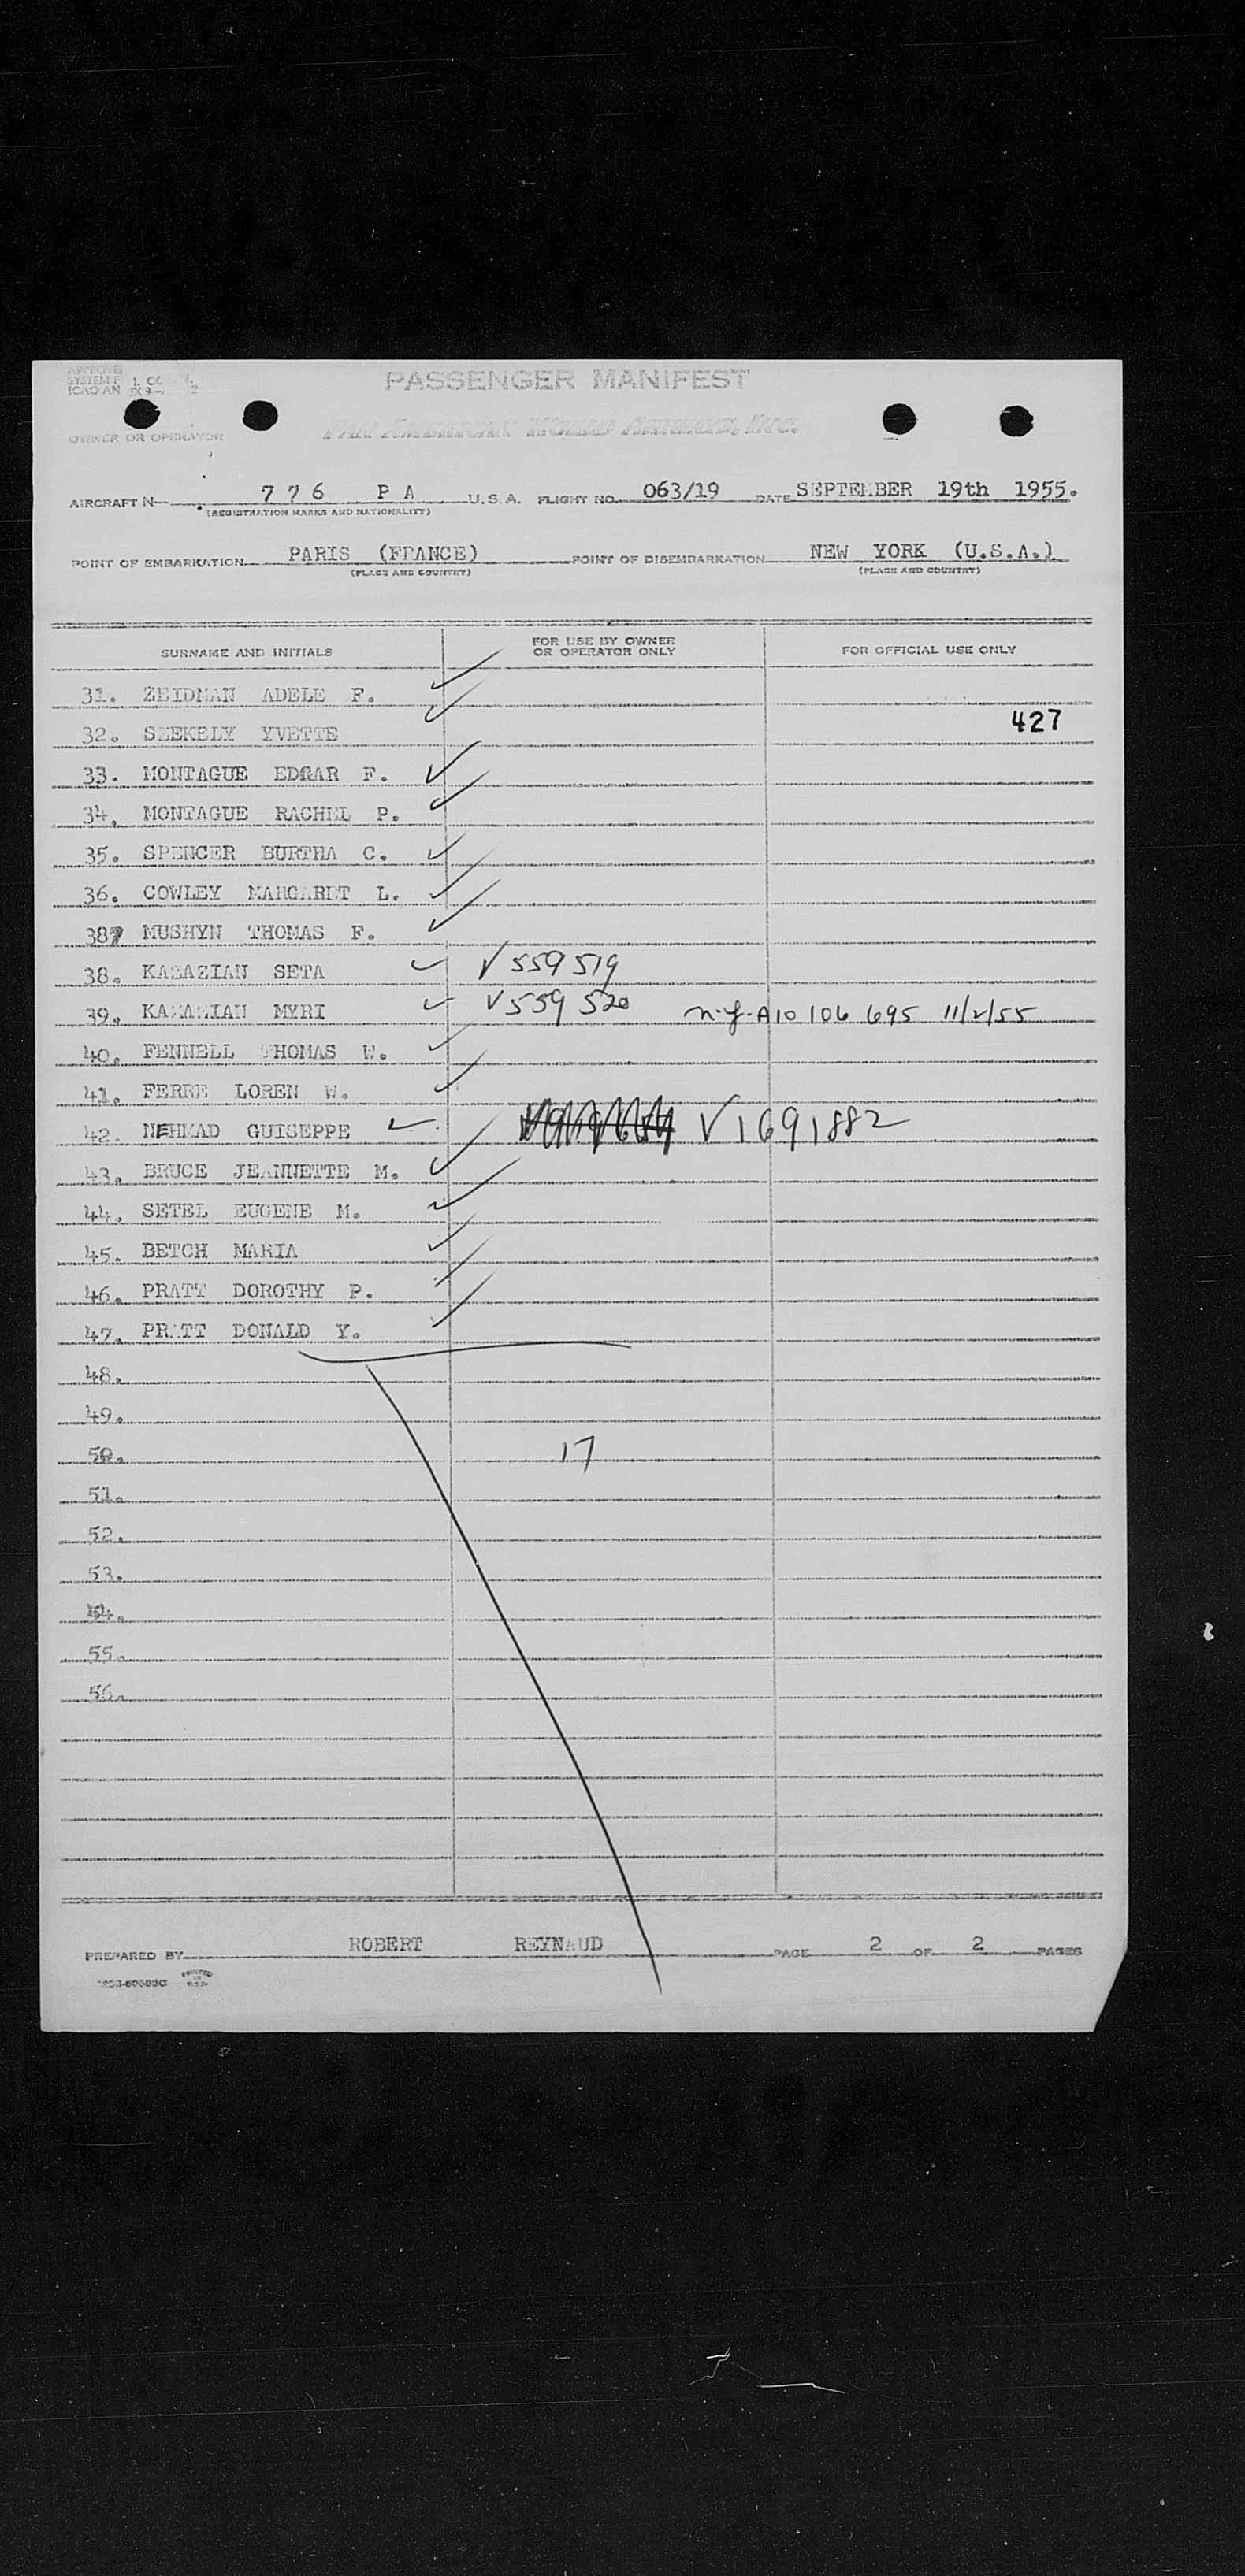 PASSENGER MANIFEST
PAN AMERICAN WORLD AIRWAYS, INC.
OWNER OR OPERATOR
AIRCRAFT N 776 PA U.S.A. FLIGHT NO. 063/19 DATE SEPTEMBER 19th 1955.
(REGISTRATION MARKS AND NATIONALITY)
POINT OF EMBARKATION PARIS (FRANCE) POINT OF DISEMBARKATION NEW YORK (U.S.A.)
(PLACE AND COUNTRY) (PLACE AND COUNTRY)
SURNAME AND INITIALS FOR USE BY OWNER OR OPERATOR ONLY FOR OFFICIAL USE ONLY
31. ZEIDMAN ADELE F.
32. SZEKELY YVETTE 427
33. MONTAGUE EDGAR F.
34. MONTAGUE RACHEL P.
35. SPENCER BURTHA C.
36. COWLEY MARGARET L.
387 MUSHYN THOMAS F.
38. KAZAZIAN SETA V 559 519
39. KAZAZIAN MYRI V 559 520 n.y. A10 106 695 11/2/55
40. FENNELL THOMAS W.
41. FERRE LOREN W.
42. NEHMAD GUISEPPE V1691882
43. BRUCE JEANNETTE M.
44. SETEL EUGENE M.
45. BETCH MARIA
46. PRATT DOROTHY P.
47. PRATT DONALD Y.
48.
49.
50. 17
51.
52.
53.
54.
55.
56.
PREPARED BY ROBERT REYNAUD PAGE 2 OF 2 PAGES
PRINTED IN U.S.A.